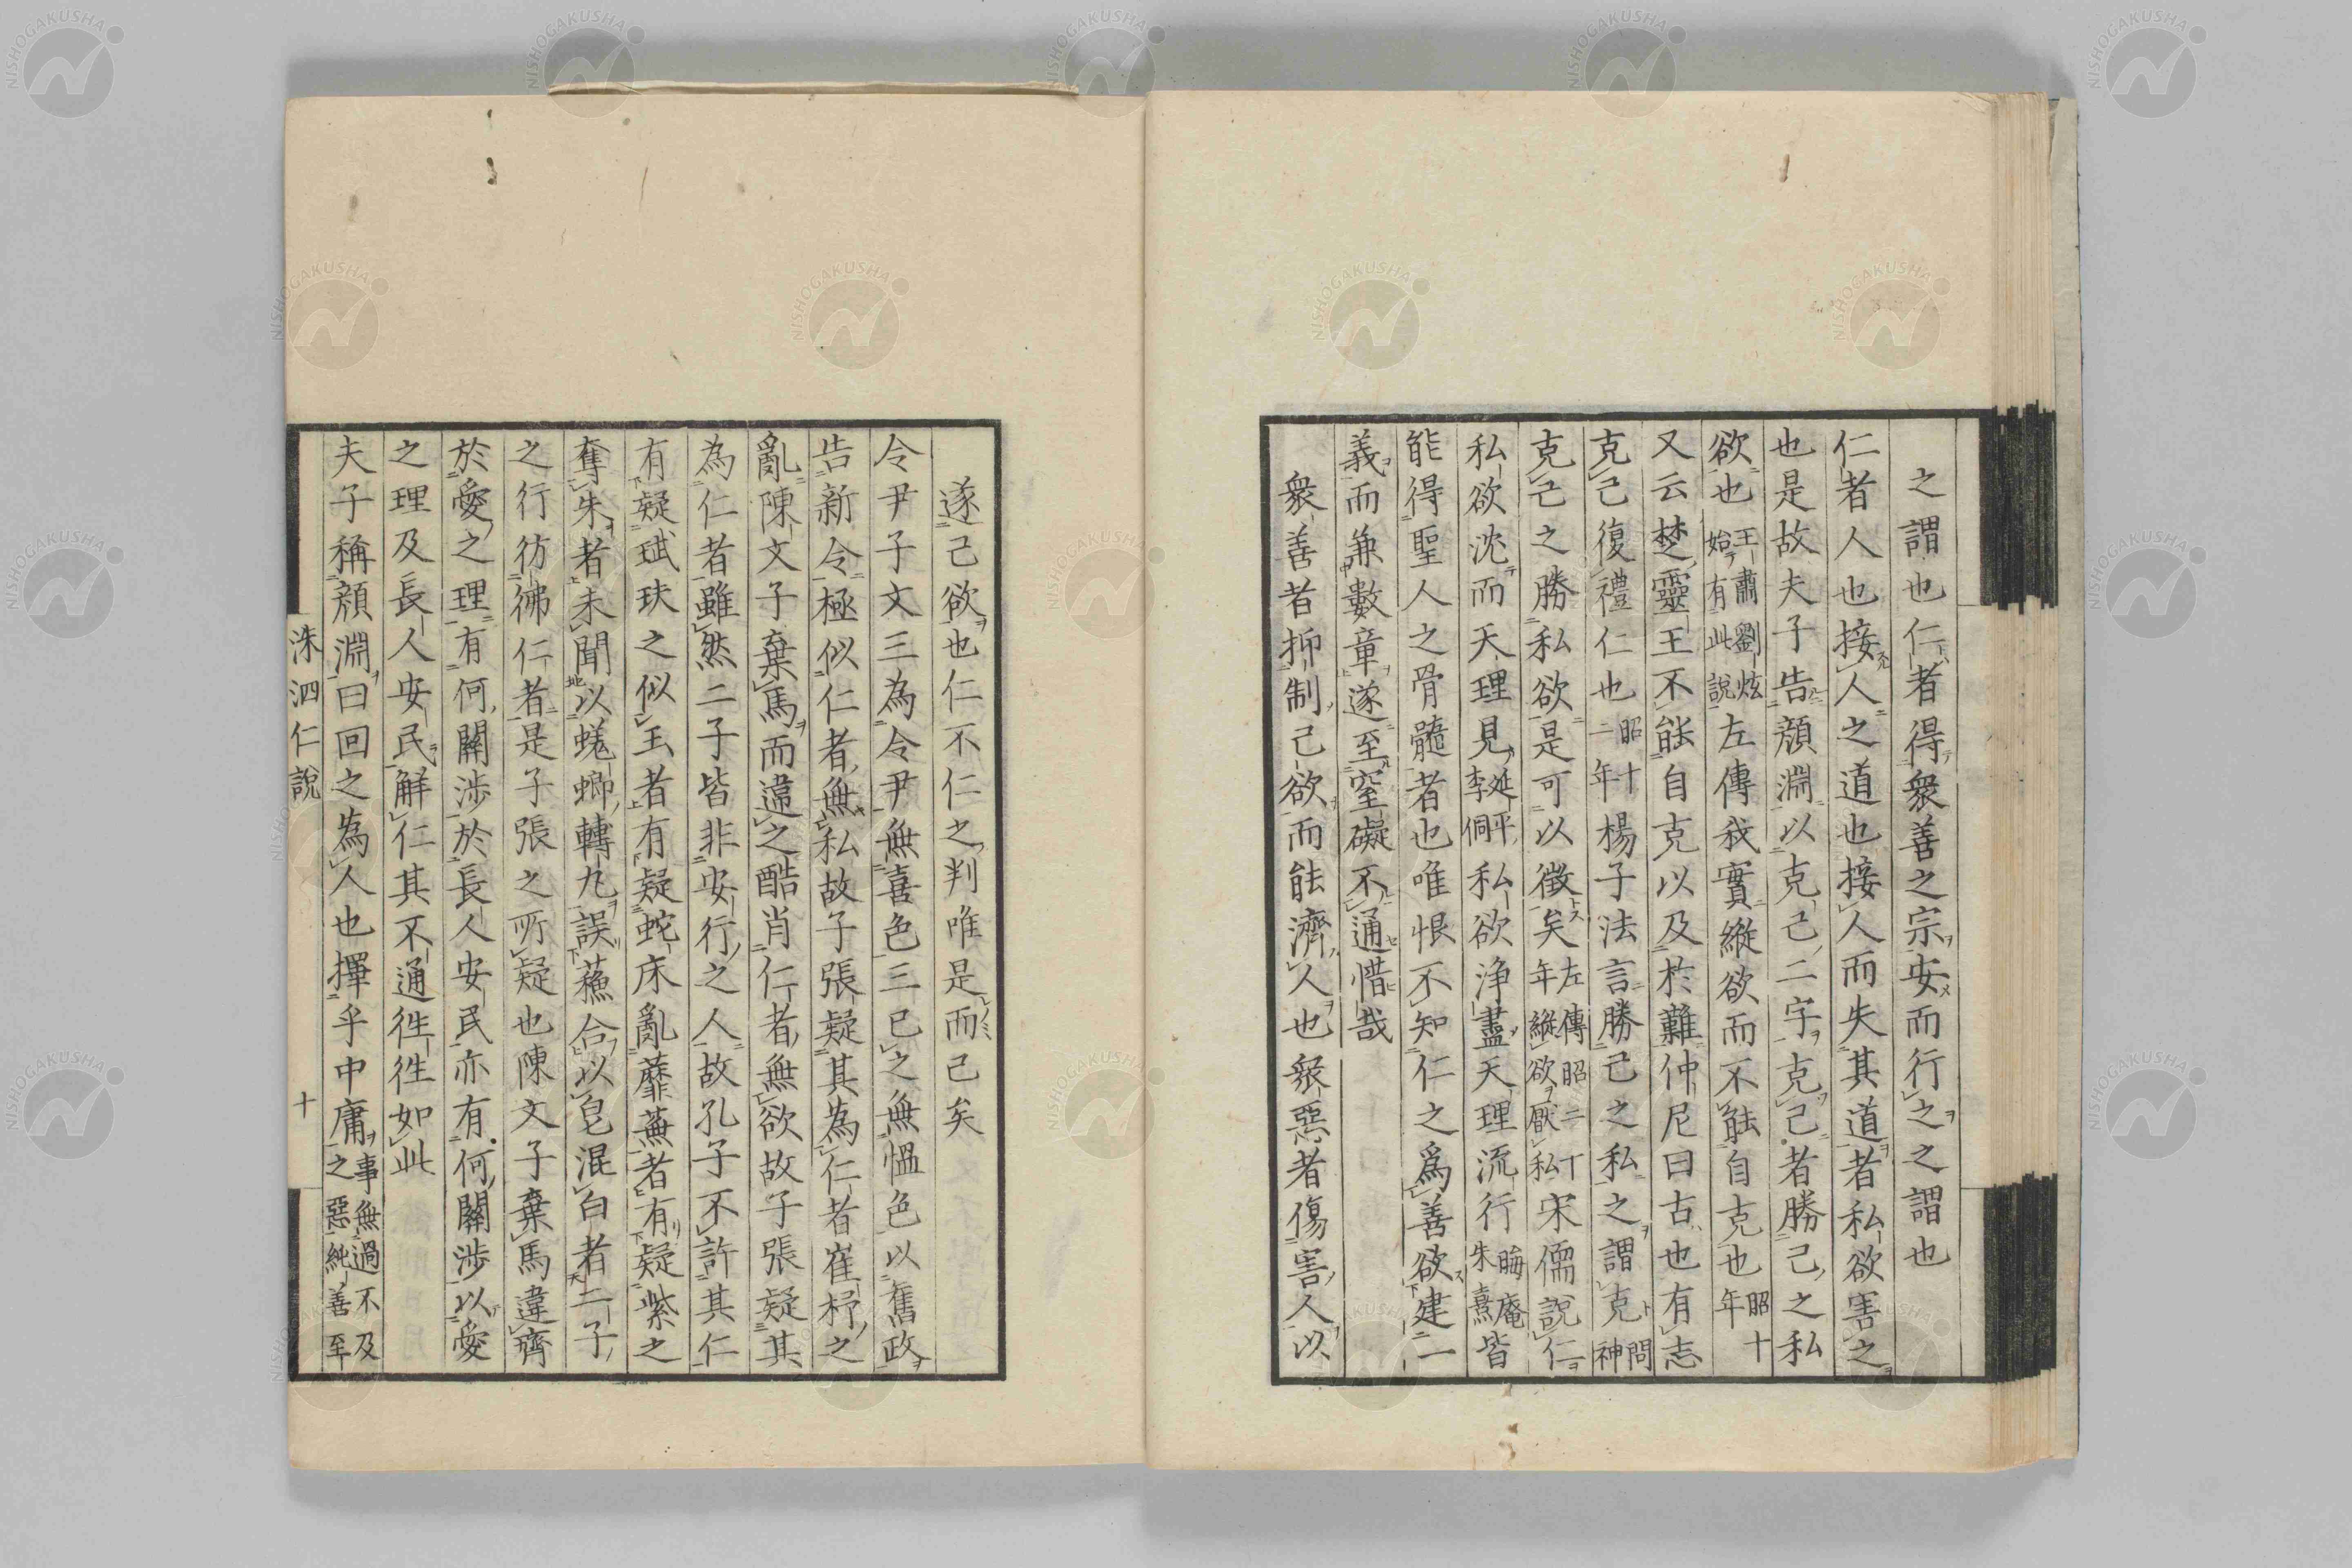 之謂也仁者得衆善之宗安而行之之謂也
仁者人也接人之道也接人而失其道者私欲害之
也是故夫子告顏淵以克己二字克己者勝己之私
欲也王肅劉炫始有此說左傳我實縱欲而不能自克也昭十年
又云楚靈王不能自克以及於難仲尼曰古也有志
克己復禮仁也昭十二年楊子法言勝己之私之謂克問神
克己之勝私欲是可以徵矣左傳昭二十年縱欲厭私宋儒說仁
私欲沈而天理見延平李侗私欲淨盡天理流行晦庵朱熹皆
能得聖人之骨髓者也唯恨不知仁之爲善欲建一
義而兼數章遂至窒礙不通惜哉
衆善者抑制己欲而能濟人也衆惡者傷害人以
遂己欲也仁不仁之判唯是而已矣
令尹子文三為令尹無喜色三已之無慍色以舊政
告新令極似仁者無私故子張疑其為仁者崔杼之
亂陳文子棄馬而違之酷肖仁者無欲故子張疑其
為仁者雖然二子皆非安行之人故孔子不許其仁
有疑珷玞之似玉者有疑蛇床亂蘼蕪者有疑紫之
奪朱者未聞以蜣蜋轉丸誤蘓合以皂混白者二子
之行彷彿仁者是子張之所疑也陳文子棄馬違齊
於愛之理有何關涉於長人安民亦有何關涉以愛
之理及長人安民解仁其不通徃徃如此
夫子稱顏淵曰回之為人也擇乎中庸事無過不及之惡純善至
洙泗仁說
十
NISHOGAKUSHA